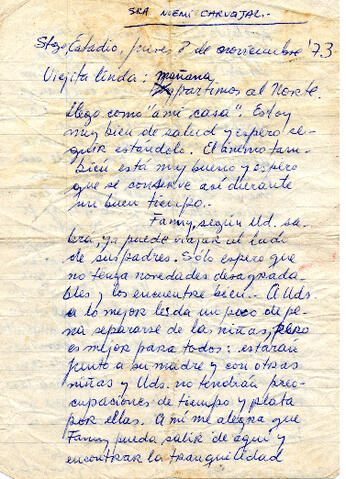 SRA NOEMI CARVAJAL.-
Stgo, Estadio, jueves 8 de noviembre '73
Viejita linda: mañana
partimos al Norte.
Llego como "a mi casa". Estoy
muy bien de salud y espero se-
guir estandolo. El ánimo tam-
bién está muy bueno y espero
que se conserve así durante
un buen tiempo.-
Fanny, según Ud. sa-
brá, ya puede viajar al lado
de sus padres. Sólo espero que
no tenga novedades desagrada-
bles y los encuentre bien.- A Uds
a lo mejor les da un poco de pe-
na separarse de las niñas, pero
es mejor para todos: estarán
junto a su madre y con otras
niñas y Uds. no tendrán preo-
cupaciones de tiempo y plata
por ellas. A mí me alegra que
Fanny pueda salir de aquí y
encontrar la tranquilidad